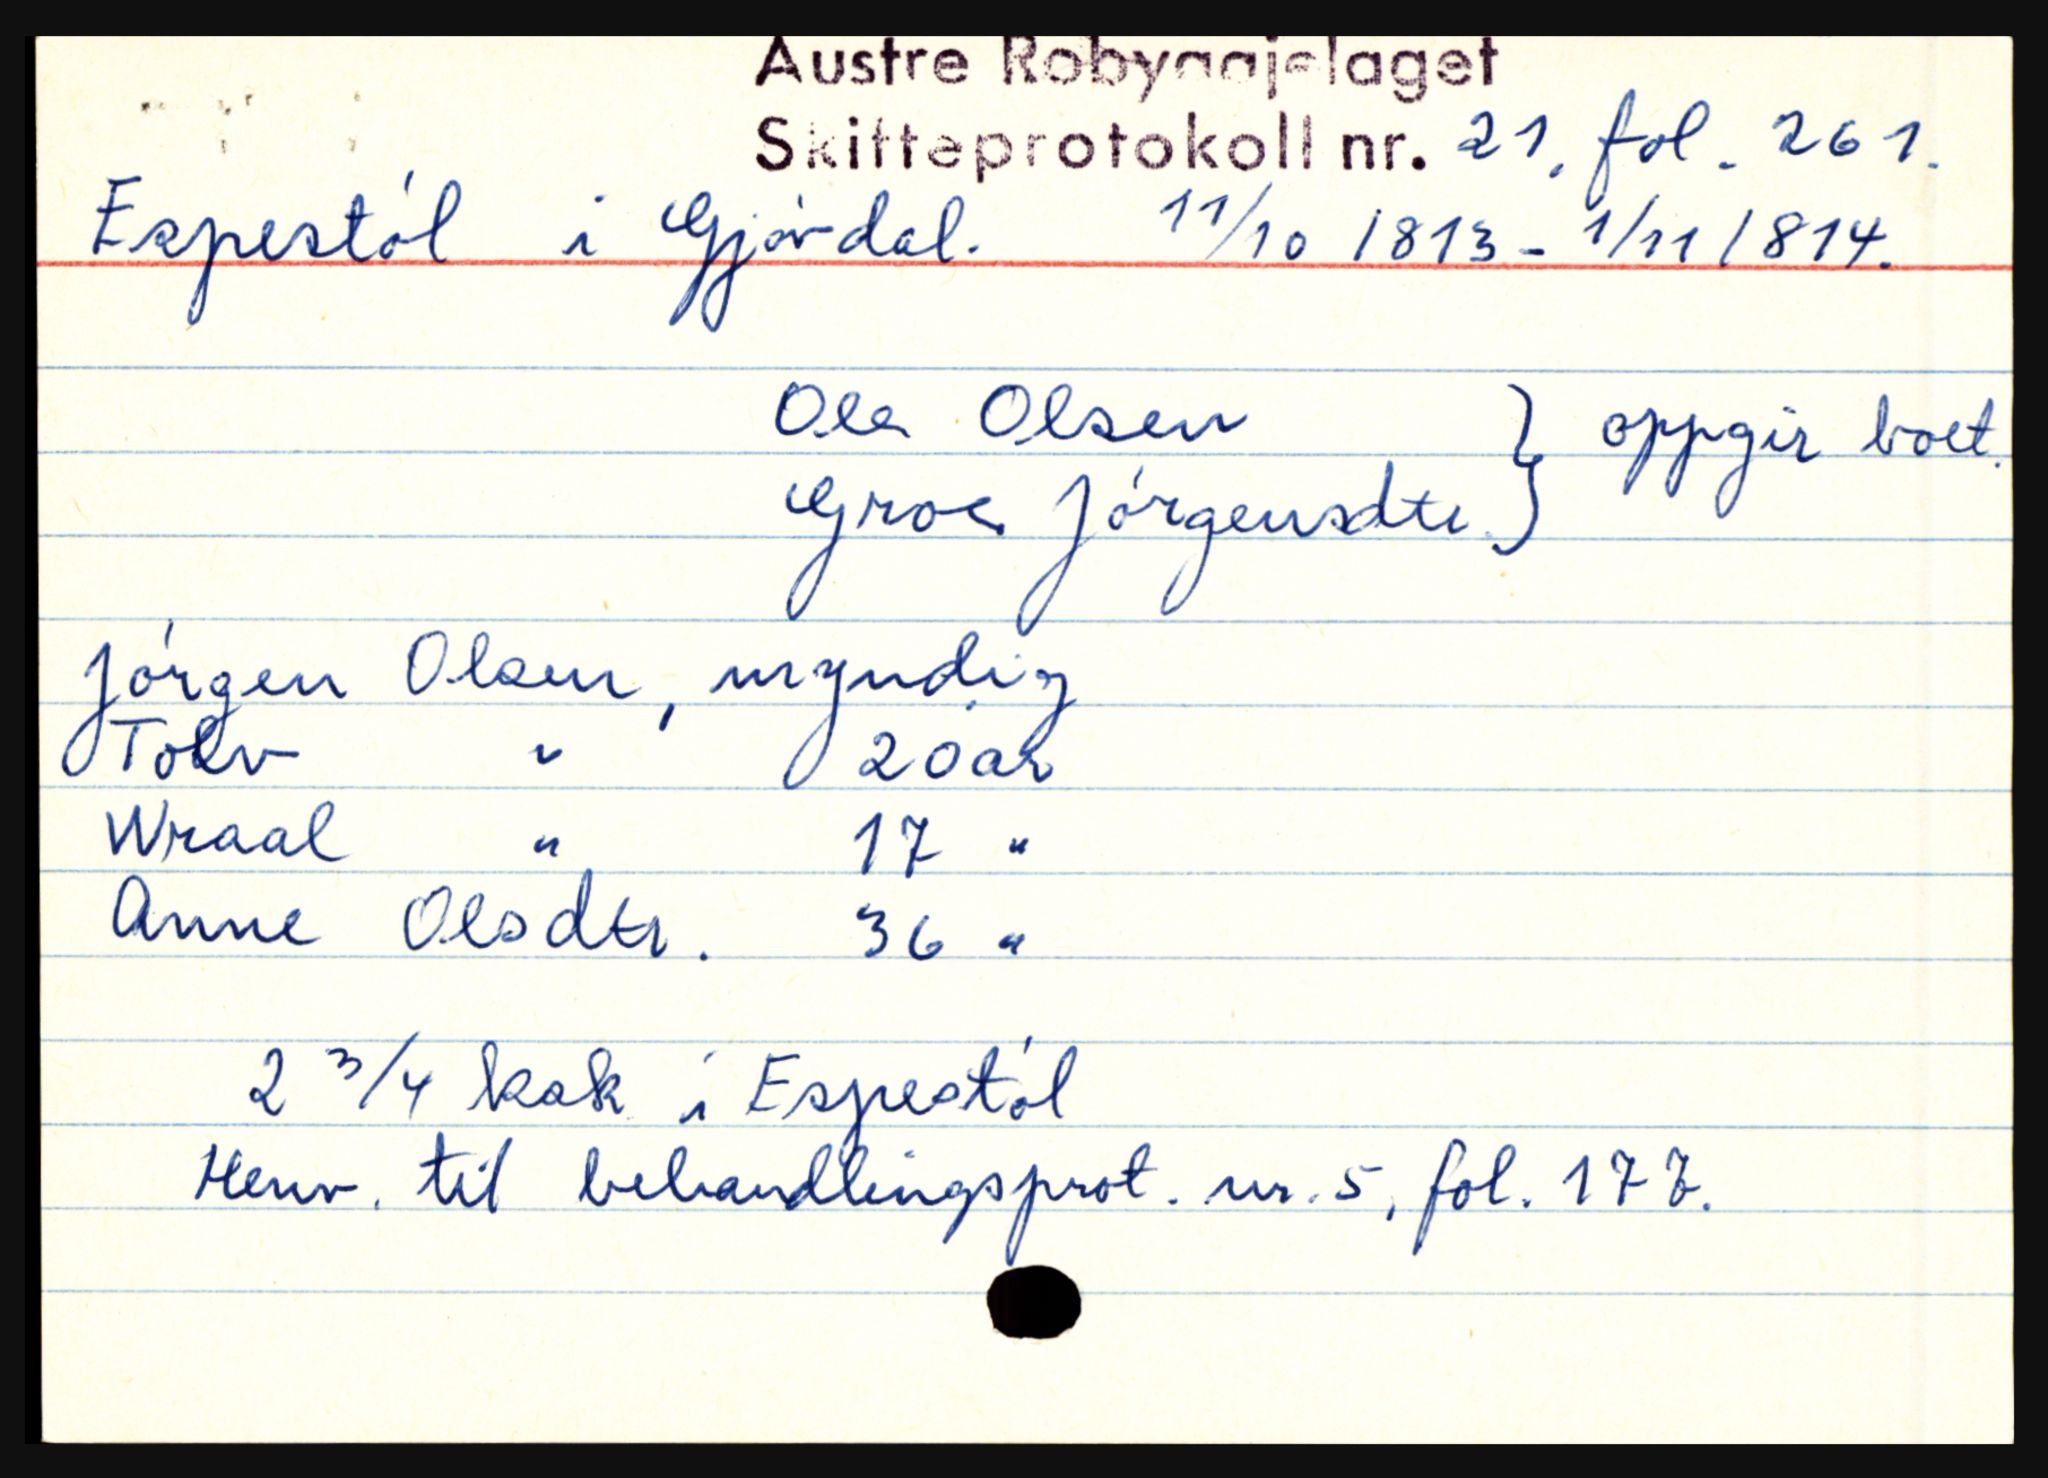 Austre Robyggjelaget
Skifteprotokoll nr. 21, fol. 261.
Espestól i Gjóvdal. 11/10 1813 - 1/11 1814.
Ole Olsen } oppgir boet.
Groe Jórgensdtr. }
Jórgen Olsen, myndig
Tolv " 20 år
Wraal " 17 "
Anne Olsdtr. 36 "
2 3/4 ksk i Espestól
Henv. til behandlingsprot. nr. 5, fol. 177.